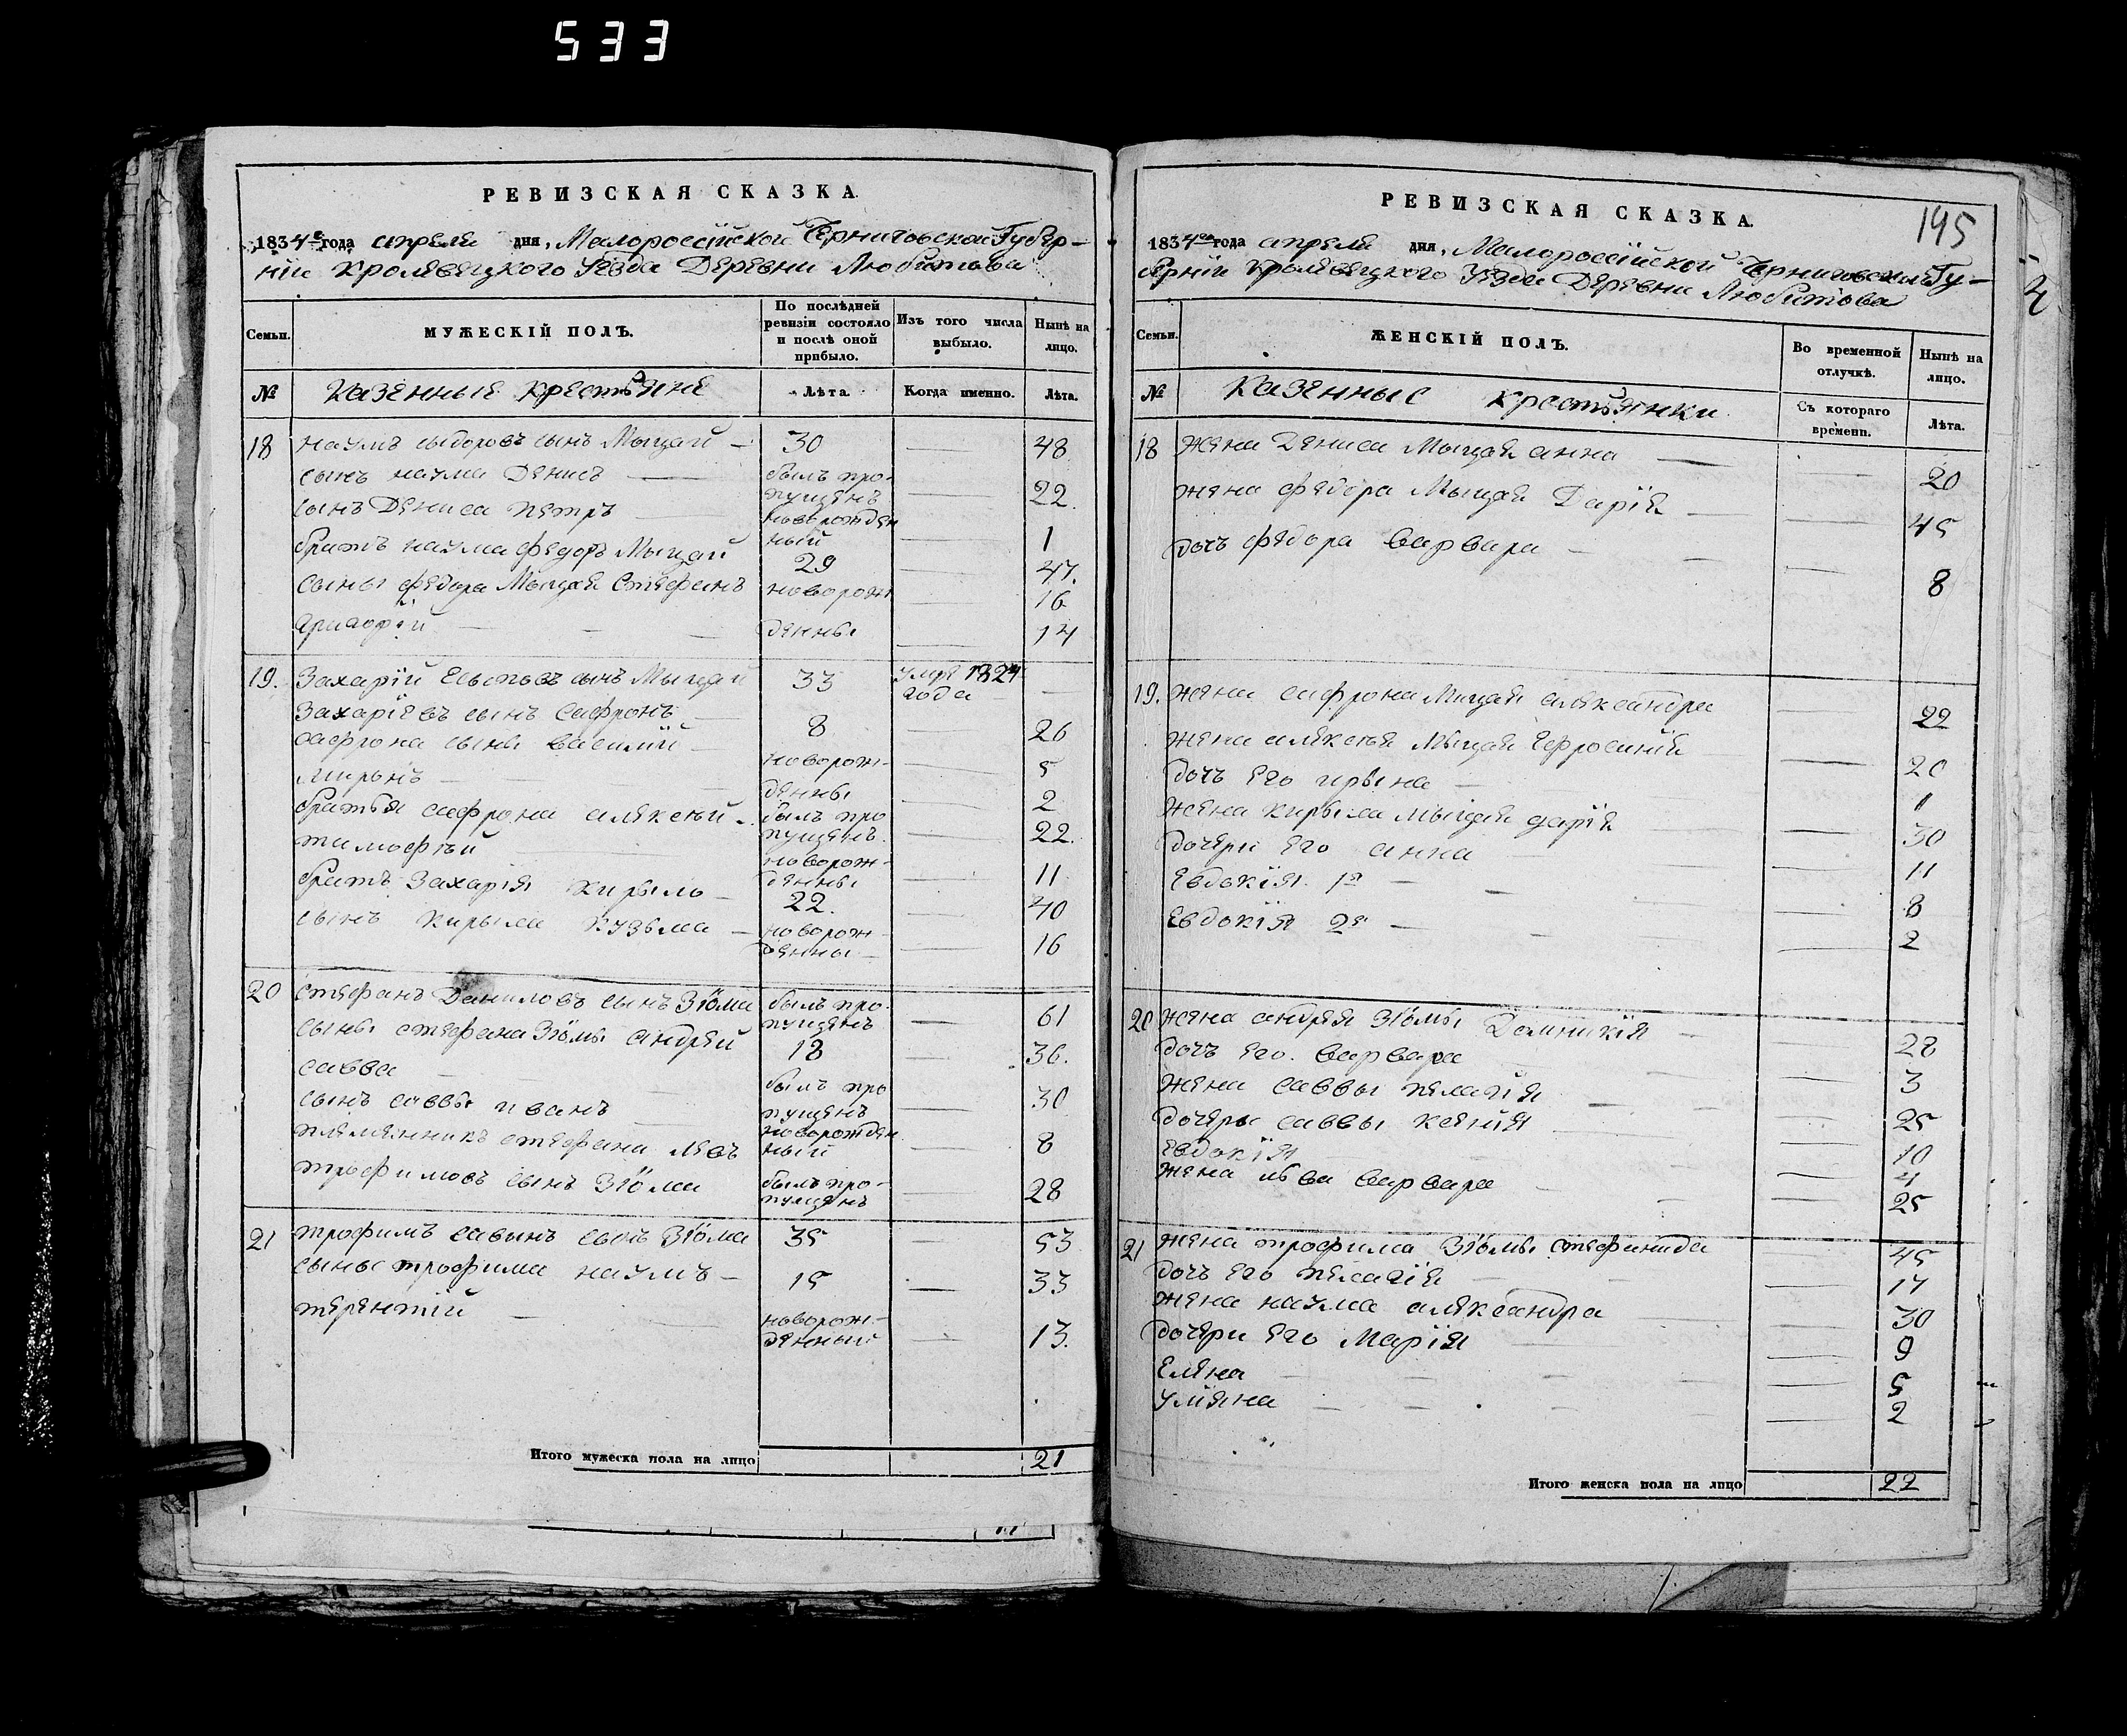 533
РЕВИЗСКАЯ СКАЗКА.
1834го года апреля дня, Малоросiйской Черниговской Губер-
нiи Кролевецкого Уезда Деревни Любитова
Семьи.
МУЖЕСКІЙ ПОЛЪ.
По послѣдней ревизіи состояло и послѣ оной прибыло.
Изъ того числа выбыло.
Нынѣ на лицо.
№
Казенные крестьяне
Лѣта.
Когда именно.
Лѣта.
18 наумъ сыдоровъ сынъ Мыцай — 30 — 48
сынъ наума Денисъ — былъ про- пущенъ — 22.
сынъ Дениса петръ — новорожден ный — 1
братъ наума федоръ Мыцай 29 — 47.
сыны федора Мыцая Стефанъ новорож — 16
— денны — 14
19. Захарiй Есыповъ сынъ Мыцай 33 умре 1824 года —
Захарiевъ сынъ Сафронъ — 8 — 26
сафрона сыны василiй — новорож- — 5
миронъ — денны — 2
братья сафрона алексѣй — былъ про пущенъ. — 22.
тимофѣй — новорож- денны — 11
братъ Захарiя кирыло — 22. — 40
сынъ кирыла кузьма — новорож- денны — 16
20 стефанъ Даниловъ сынъ Зюма былъ про- пущенъ — 61
сыны стефана Зюмы андрей 18 — 36.
савва — былъ про пущенъ — 30
сынъ саввы иванъ новорожден ный — 8
племянникъ стефана левъ
трофимовъ сынъ Зюма былъ про- пущенъ — 28
21 трофимъ савынъ сынъ Зюма 35 — 53
сыны трофима наумъ — 15 — 33
терентiй — новорож- денный — 13.
Итого мужеска пола на лицо 21
195
РЕВИЗСКАЯ СКАЗКА.
1834го года апреля дня, Малоросiйской Черниговской Гу-
бернiи Кролевецкого Уезда Деревни Любитова
Семьи.
ЖЕНСКІЙ ПОЛЪ.
Во временной отлучкѣ.
Нынѣ на лицо.
№
Казенные крестьянки
Съ котораго времени.
Лѣта.
18 жена Дениса Мыцая анна — — 20
жена федора Мыцая Дарiя — — 45
дочъ федора варвара — — 8
19. жена сафрона Мыцая александра — 22
жена алексѣя Мыцая Ефросинiя — 20
дочъ его ирына — — 1
жена кирыла мыцая дарiя — 30
дочери его анна — 11
Евдокiя 1я — — 8
Евдокiя 2я — — 2
20 жена андрея Зюмы Домникiя — — 28
дочъ его. варвара — 3
жена саввы пелагiя — — 25
дочеры саввы ксенiя — 10
евдокiя — 4
жена лва варвара — — 25
21 жена трофима Зюмы стефанида 45
дочъ его пелагiя — — 17
жена наума александра — 30
дочери его Марiя — 9
Елена — — 5
улiяна — — 2
Итого женска пола на лицо 22